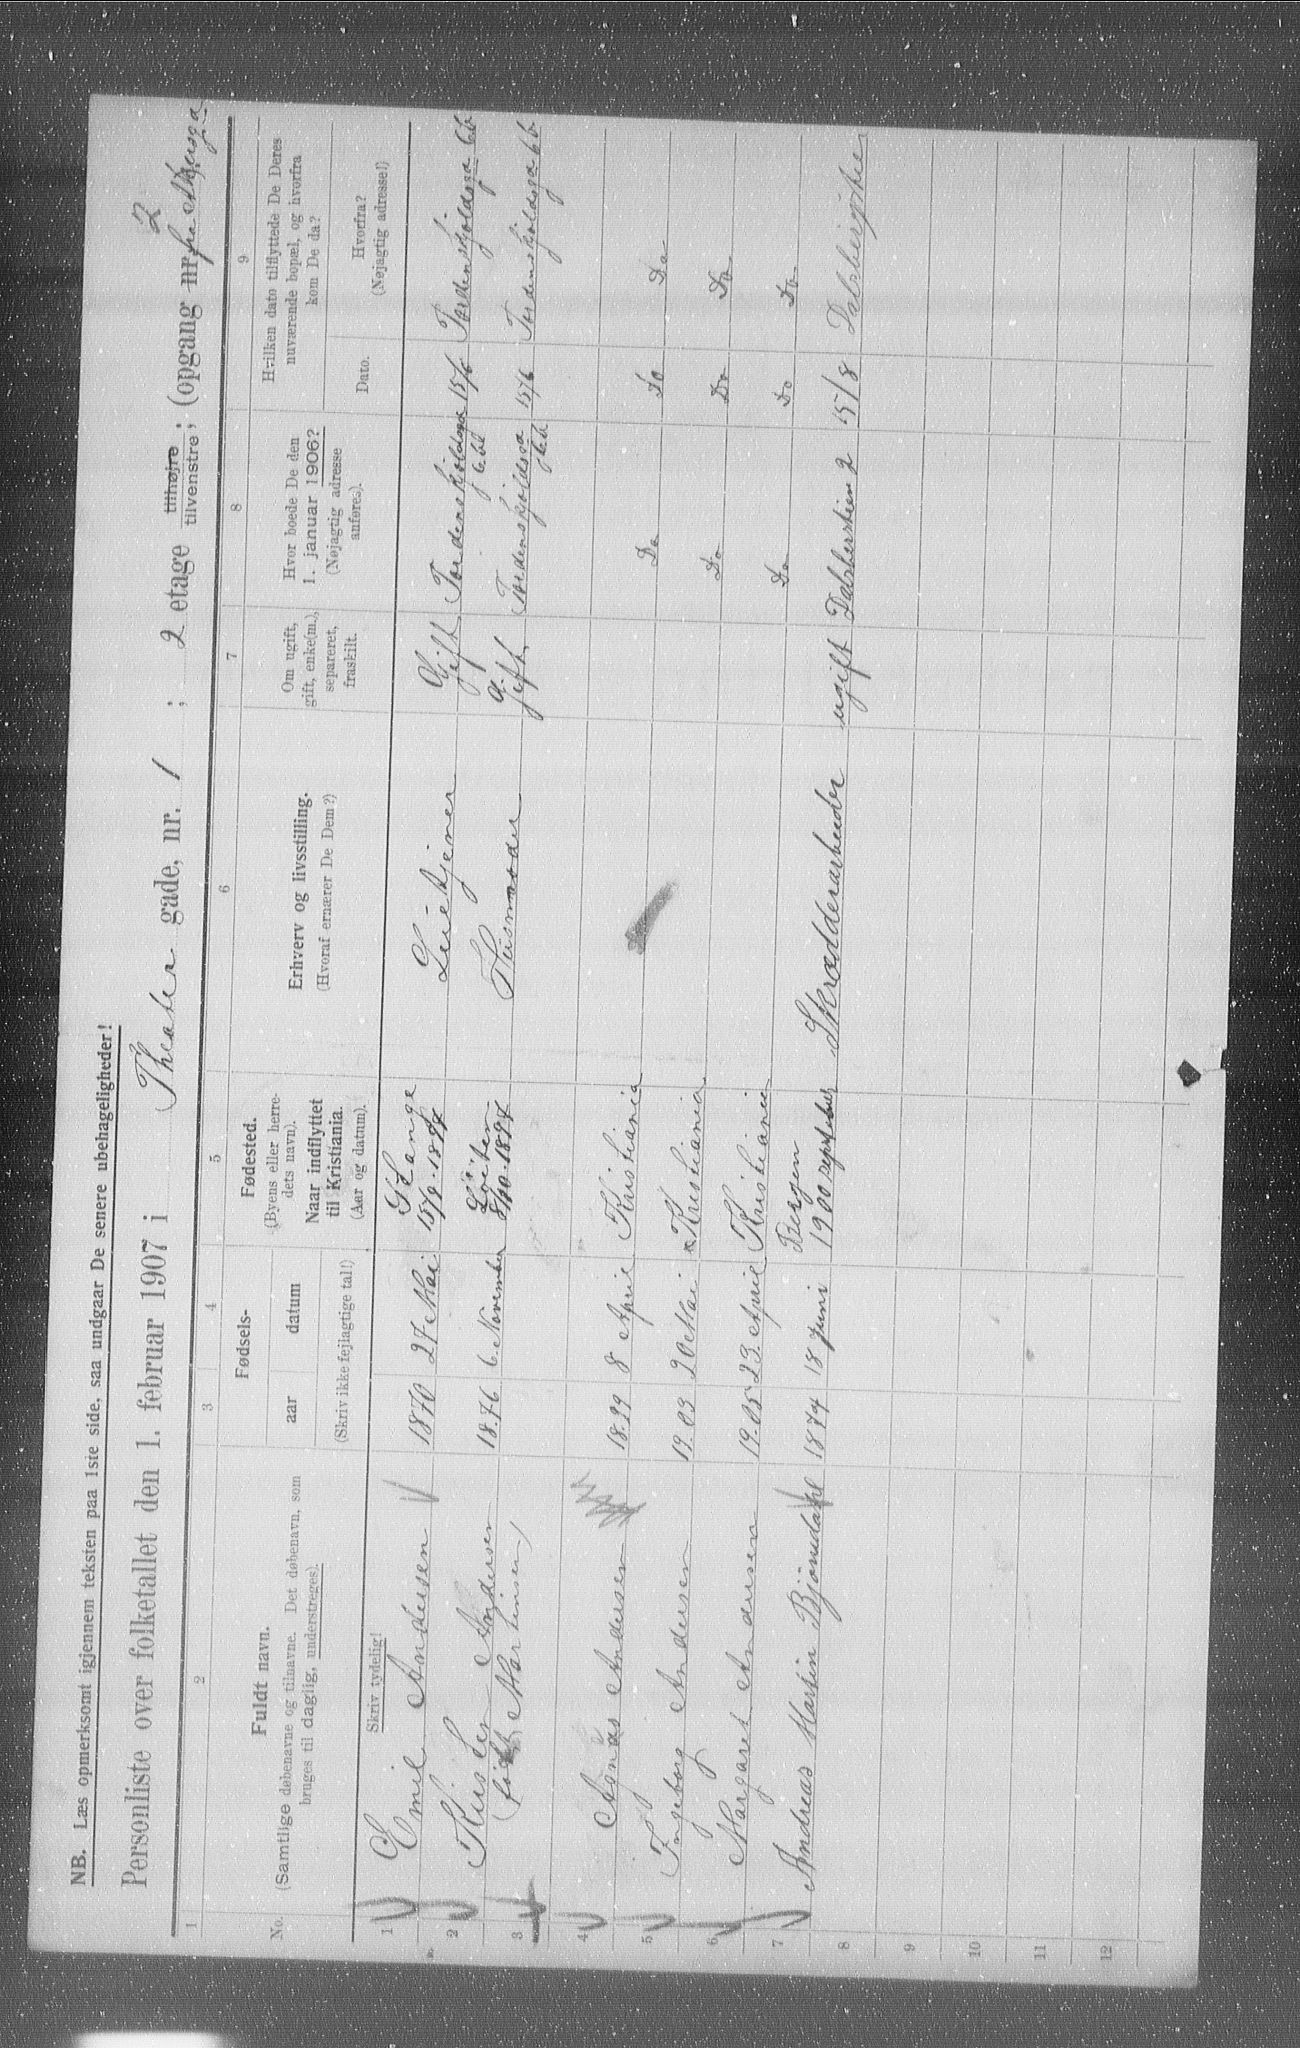 NB. Læs opmerksomt igjennem teksten paa 1ste side, saa undgaar De senere ubehageligheder!
Personliste over folketallet den 1. februar 1907 i Theater gade, nr. 1 ; 2 etage tilhøjre tilvenstre ; (opgang nr. 2
fra Akersga
1 2 3 4 5 6 7 8 9
No.
Fuldt navn.
(Samtlige døbenavne og tilnavne. Det døbenavn, som
bruges til daglig, understreges).
Skriv tydelig!
Fødsels-
aar datum
(Skriv ikke fejlagtige tal!)
Fødested.
(Byens eller herre-
dets navn).
Naar indflyttet
til Kristiania.
(Aar og datum).
Erhverv og livsstilling.
(Hvoraf ernærer De Dem?)
Om ugift,
gift, enke(m.),
separeret,
fraskilt.
Hvor boede De den
1. januar 1906?
(Nøjagtig adresse
anføres).
Hvilken dato tilflyttede De Deres
nuværende bopæl, og hvorfra
kom De da?
Dato.
Hvorfra?
(Nøjagtig adresse!)
1 Emil Andersen 1870 27 Mai Stange Gift Tordenskjoldsga 6b 15/6 Tordenskjoldsga 6b
2 Andersen 1876 6 November Løiten Husmoder Gift Tordenskjoldsga 6b 15/6 Tordenskjoldsga 6b
3 (født Martinsen)
4 Agnas Andersen 1899 8 April Kristiania Do Do Do
5 Ingeborg Andersen 1903 20 Mai Kristiania Do Do Do
6 Margaret Andersen 1905 23 April Kristiania Do Do Do
7 Andreas Martin Bjørndahl 1874 18 juni Bergen
1900 september Skrædderarbeider ugift Dalsbergstien 2 15/8 Dalsbergstien
8
9
10
11
12